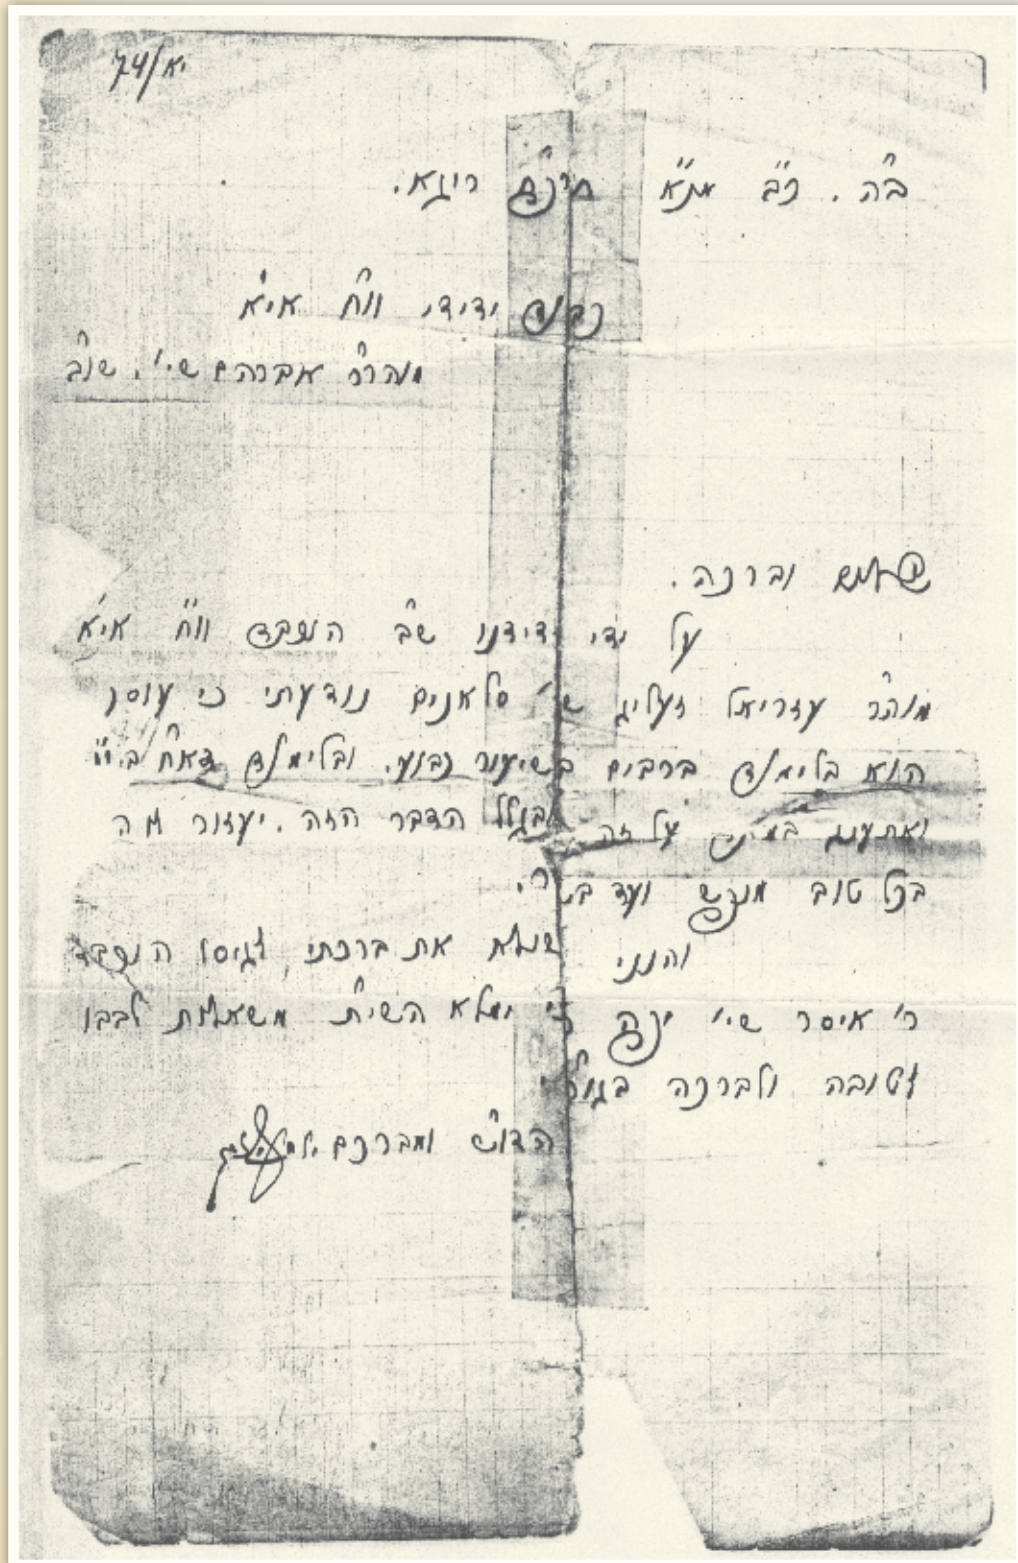 יא/74
ב"ה. כ"ב מ"ח תרפ"ח ריגא.
כבוד ידידי וו"ח אי"א
מוהר"ר אברהם שי'. שו"ב
שלום וברכה.
על ידי ידידנו שו"ב הנכבד וו"ח אי"א
מוה"ר עזריאל זעליג שי' סלאנים נודעתי כי עוסק
הוא בלימוד ברבים בשיעור קבוע. ובלימוד דא"ח
ואתענג על זה ובגלל הדבר הזה. יעזור לו ה'
בכל טוב מנפש ועד בשר.
והנני שולח את ברכתי לגיסו הנכבד
ר' איסר שי' כי ימלא השי"ת משאלות לבבו
לטובה ולברכה בגו"ר
הדו"ש ומברכם